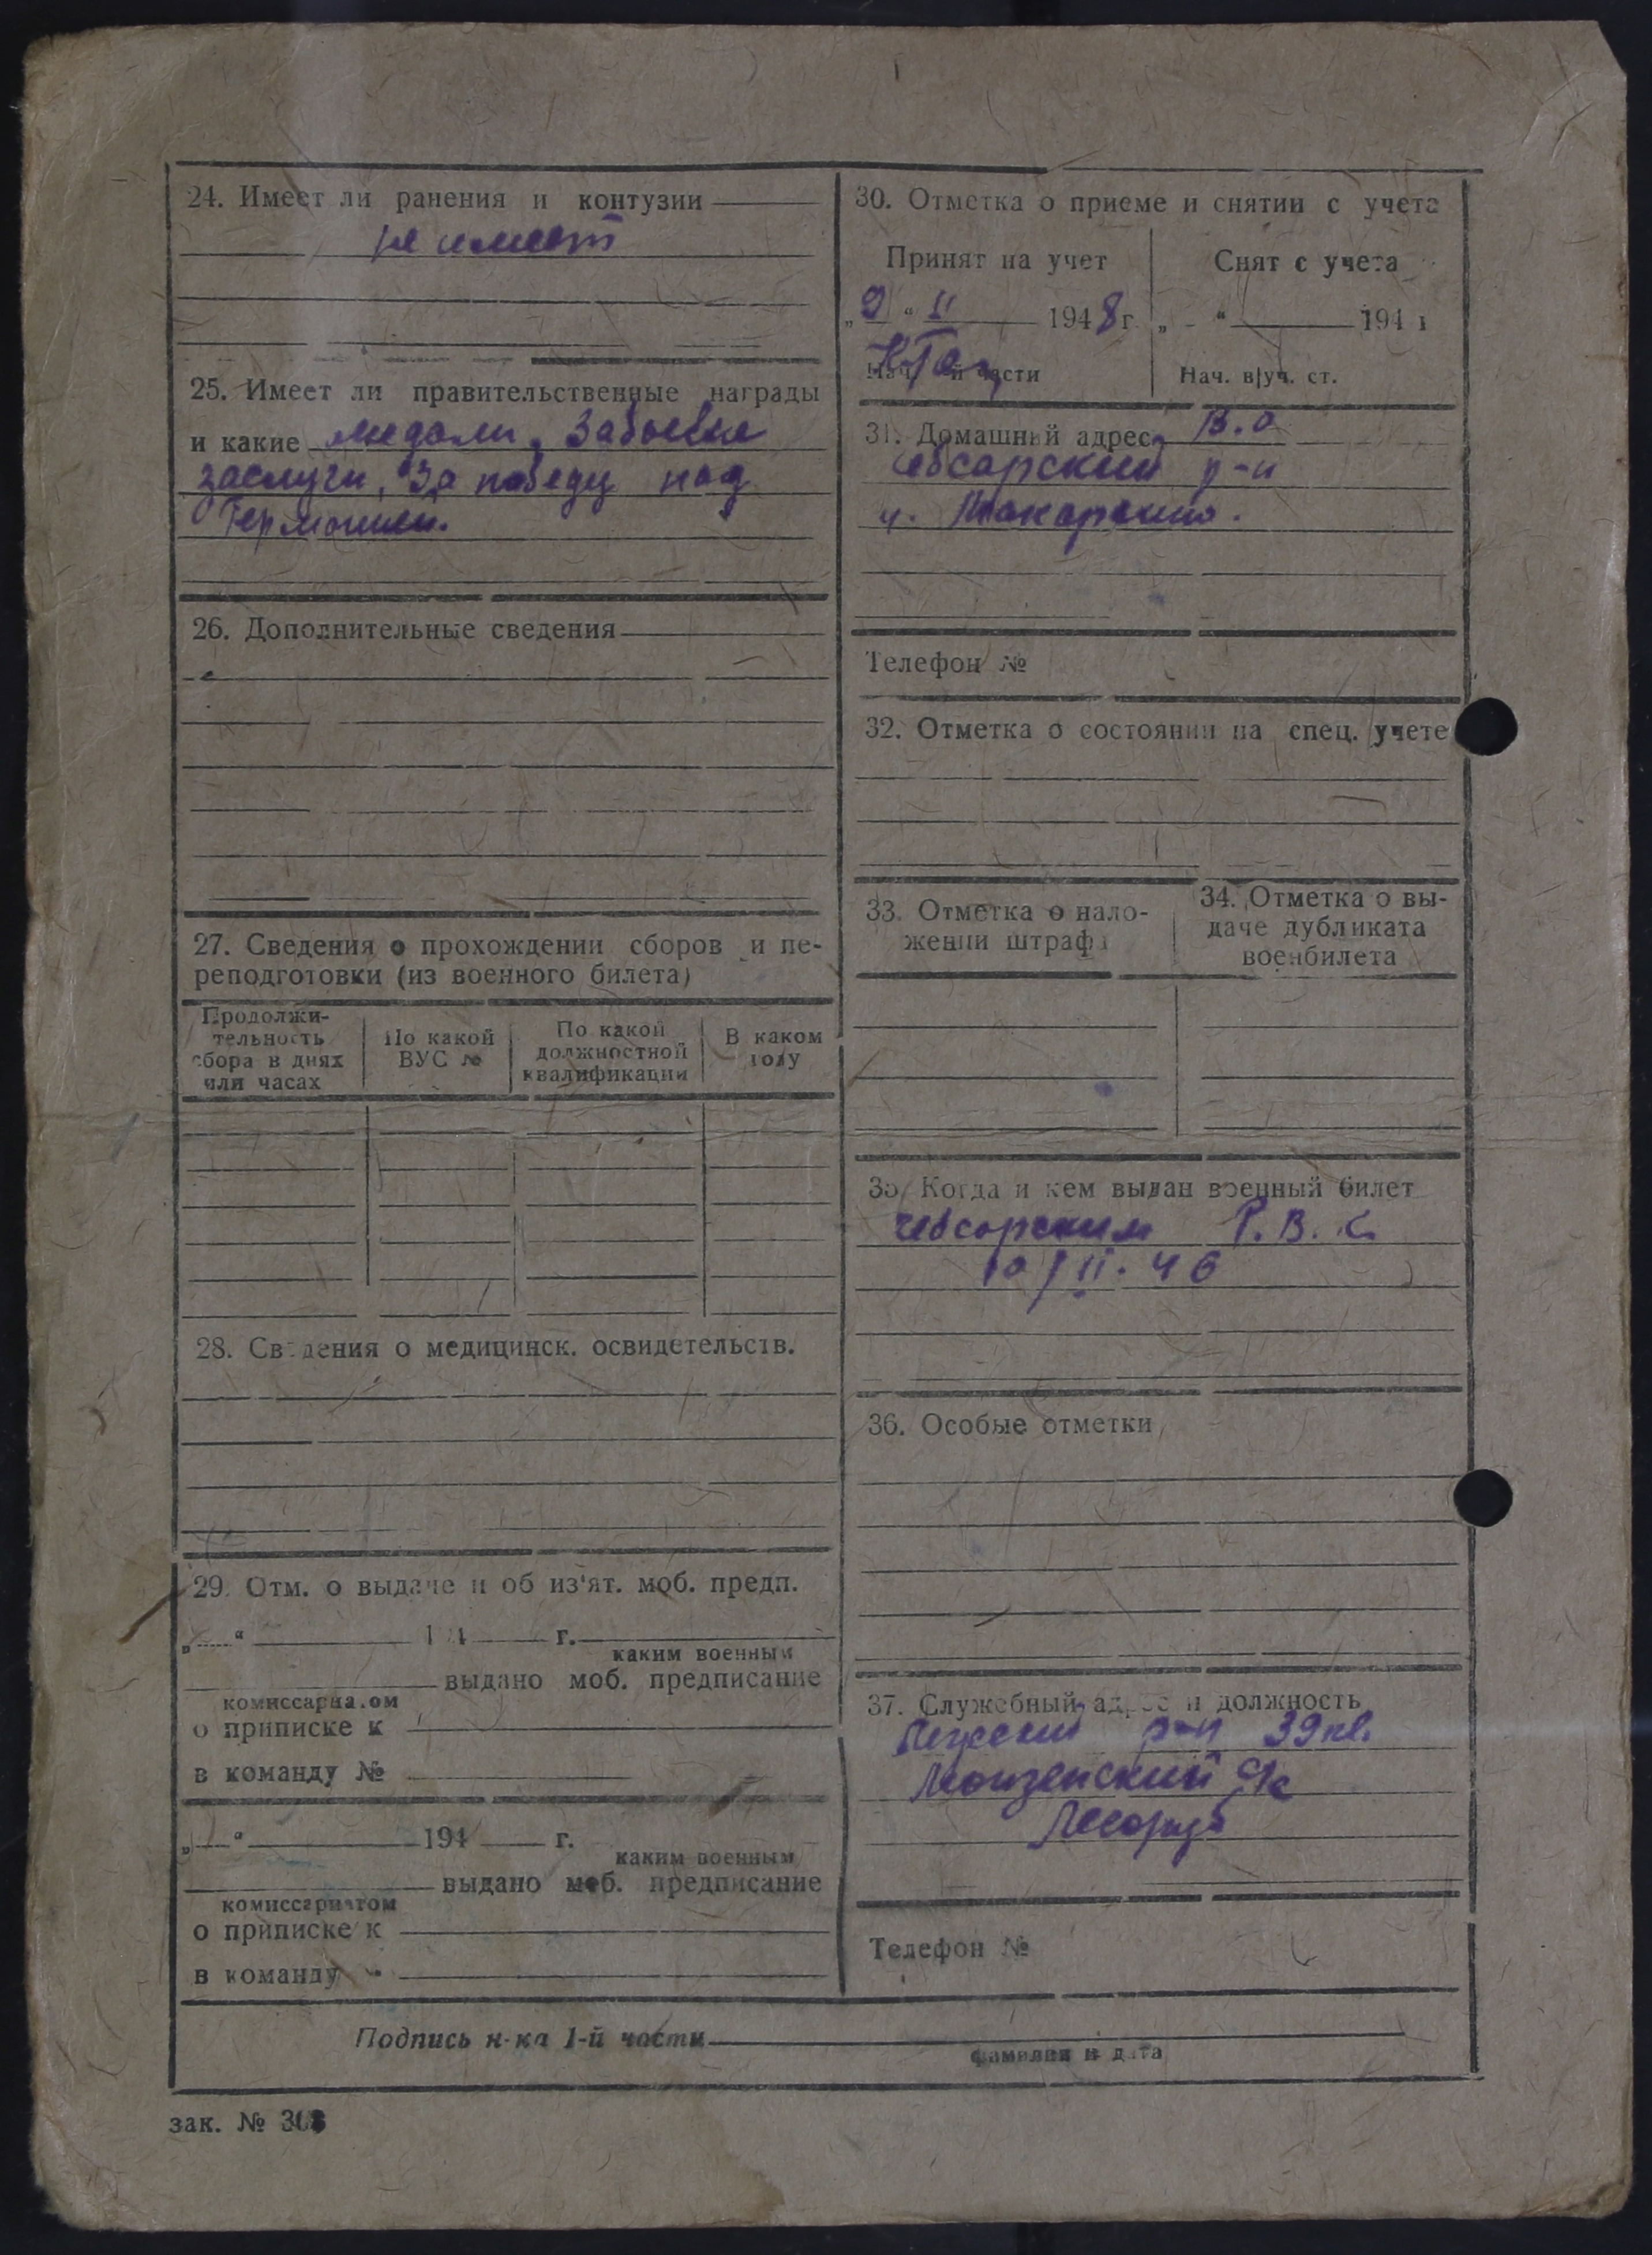 24. Имеет ли ранения и контузии
не имеет
25. Имеет ли правительственные награды
и какие медали, За боевые
заслуги, "За победу над
Германией.
26. Дополнительные сведения
27. Сведения о прохождении сборов и пе-
реподготовки (из военного билета)
Продолжи-
тельность
сбора в днях
или часах
По какой
ВУС №
По какой
должностной
квалификации
В каком
году
28. Сведения о медицинск. освидетельств.
29. Отм. о выдаче и об из'ят. моб. предп.
„ “ 194 г.
каким военным
выдано моб. предписание
комиссариатом
о приписке к
в команду №
„ “ 194 г.
каким военным
выдано моб. предписание
комиссариатом
о приписке к
в команду
30. Отметка о приеме и снятии с учета
Принят на учет
Снят с учета
„2 “ II 1948 г.
„ “ 194 г
Нач. части
Нач. в/уч. ст.
31. Домашний адрес В.О
Чебсарский р-н
Макарьино.
Телефон №
32. Отметка о состоянии на спец. учете
33. Отметка о нало-
жении штрафа
34. Отметка о вы-
даче дубликата
военбилета
35. Когда и кем выдан военный билет
Чебсарским Р.В.К.
10/II. 46
36. Особые отметки
37. Служебный адрес и должность
р-н 39 кв.
Монзенский
Лесоруб
Телефон №
Подпись н-ка 1-й части
фамилия и дата
зак. № 308